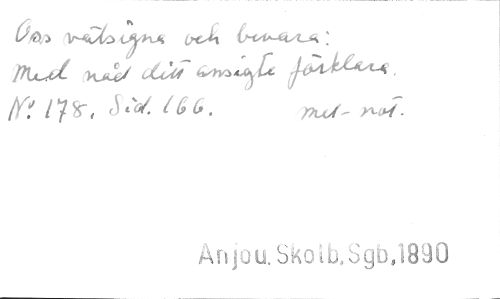 Oss välsigna och bevara:
Med nåd ditt ansigte förklara.
No. 178. Sid. 166. met-not.
Anjou, Skolb, Sgb, 1890